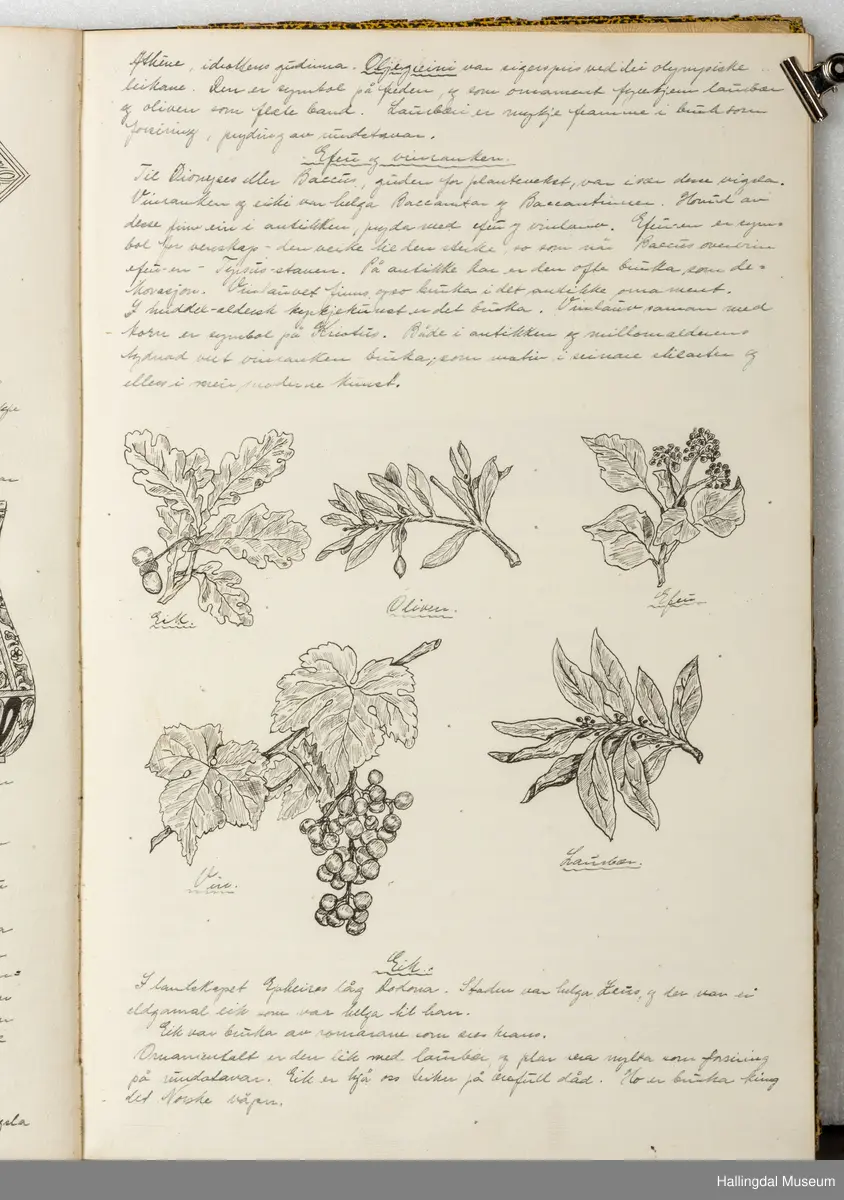 Athene, idrottens gudinna. Oljegreini var sigerspris ved dei olympiske
leikane. Den er symbol på freden, og som ornament fylkjem laurbær
og oliven som flate band. Laurbæri er mykje framme i bruk som
forsiring, pryding av rundstavar.
Efeu og vinranken.
Til Dionyses eller Baccus, guden for plantevekst, var især desse vigsla.
Vinranken og eiki var helga Baccantar og Baccantinner. Hovud av
desse finn ein i antikken, pryda med efeu og vinlauv. Efeu-en er sym-
bol for venskap - den veike til den sterke, so som når Baccus
efeu-en - Tyrsus-staven. På antikke kar er den ofte bruka som de-
korasjon. Vinlauvet finns også bruka i det antikke ornament.
I middel-aldersk kyrkjekunst er det bruka. Vinlauv saman med
korn er symbol på Kristus. Både i antikken og millomalderen
vert vinranken bruka, som motiv i seinare stilarter og
elles i meir moderne kunst.
Eik.
Oliven.
Efeu
Vin.
Laurbær.
Eik.
I landskapet Epheiros låg Dodona. Staden var helga Zeus, og der var ei
eldgamal eik som var helga til han.
Eik var bruka av romarane som æres krans.
Ornamentalt er den lik med laurbær og plar vera nytta som forsiring
på rundstavar. Eik er hjå oss teikn på ærefull dåd. Ho er bruka kring
det Norske våpn.
Hallingdal Museum